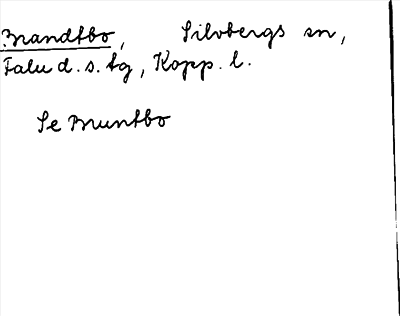 Brandtbo, Silvbergs sn,
Falu d.s. tg, Kopp. l.
Se Bruntbo